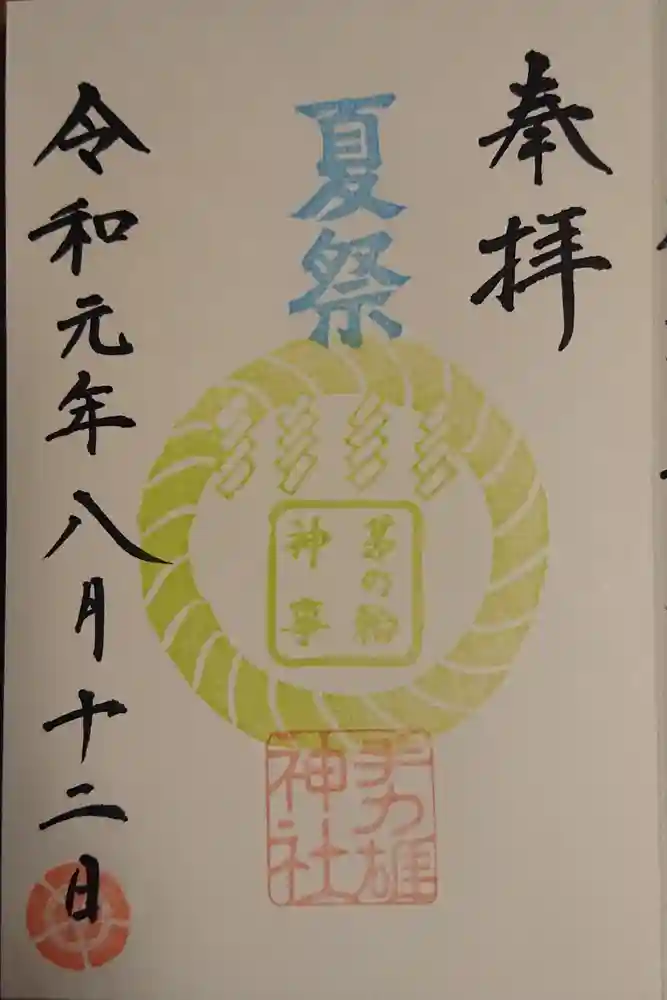 奉拝
夏祭
茅の輪
神事
手力雄
神社
令和元年八月十二日